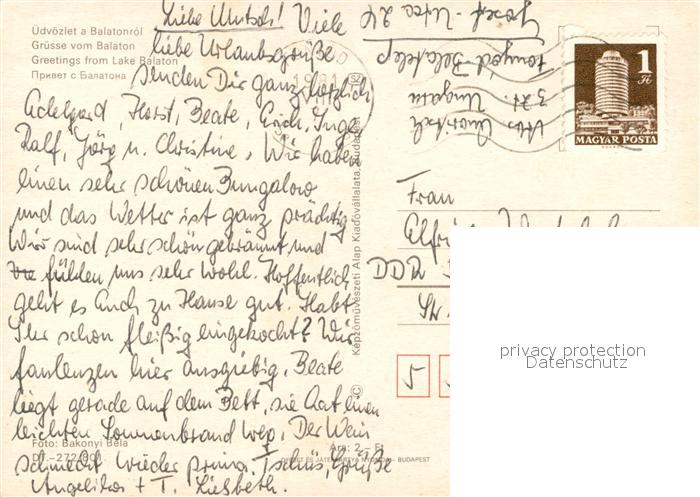 Üdvözlet a Balatonról
Grüsse vom Balaton
Greetings from Lake Balaton
Привет с Балатона
Liebe Mutsch! Viele
liebe Urlaubsgrüße
senden Dir ganz herzlich
Adelgard, Horst, Beate, Erich, Inge
Ralf, Jörg u. Christine, Wir haben
einen sehr schönen Bungalow
und das Wetter ist ganz prächtig
Wir sind sehr schön gebräunt und
fühlen uns sehr wohl. Hoffentlich
geht es Euch zu Hause gut. Habt
Ihr schon fleißig eingekocht? Wir
faulenzen hier ausgiebig. Beate
liegt gerade auf dem Bett, sie hat einen
leichten Sonnenbrand weg. Der Wein
schmeckt wieder prima. Tschüs, Grüße
Angelika + T. Liesbeth.
Foto: Bakonyi Béla
Ára: 2,- Ft
OFFSET ÉS JÁTÉKKÁRTYA NYOMDA - BUDAPEST
© Képzőművészeti Alap Kiadóvállalata, Budapest
József-Utca 24
Fonyód-Bélatelep
Ungarn
1 Ft
MAGYAR POSTA
Frau
DDR
Str.
5
privacy protection
Datenschutz